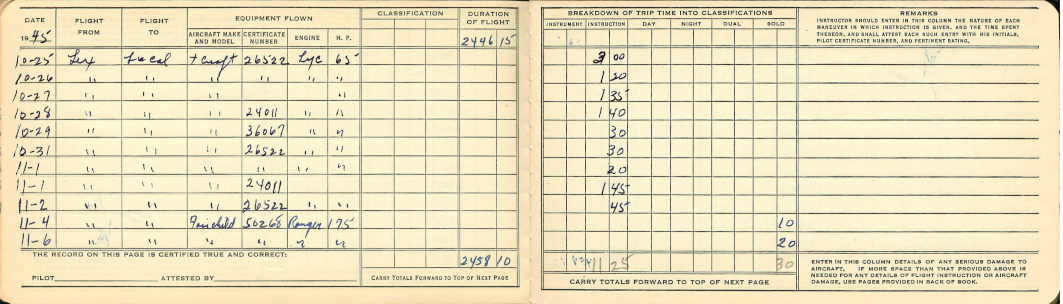 DATE FLIGHT FROM FLIGHT TO EQUIPMENT FLOWN CLASSIFICATION DURATION OF FLIGHT
1945 AIRCRAFT MAKE AND MODEL CERTIFICATE NUMBER ENGINE H. P. 2446 15
10-25 Lex Local Tcraft 26522 Lyc 65
10-26 " " " " " "
10-27 " " " "
10-28 " " " 24011 " "
10-29 " " " 36067 " "
10-31 " " " 26522 " "
11-1 " " " " " "
11-1 " " " 24011
11-2 " " " 26522 " "
11-4 " " Fairchild 50265 Ranger 175
11-6 " " " " " "
THE RECORD ON THIS PAGE IS CERTIFIED TRUE AND CORRECT: 2458 10
PILOT ATTESTED BY CARRY TOTALS FORWARD TO TOP OF NEXT PAGE
BREAKDOWN OF TRIP TIME INTO CLASSIFICATIONS
INSTRUMENT INSTRUCTION DAY NIGHT DUAL SOLO
3 00
1 20
1 35
1 40
30
30
20
1 45
45
10
20
11 25 30
CARRY TOTALS FORWARD TO TOP OF NEXT PAGE
REMARKS
INSTRUCTOR SHOULD ENTER IN THIS COLUMN THE NATURE OF EACH
MANEUVER IN WHICH INSTRUCTION IS GIVEN, AND THE TIME SPENT
THEREON, AND SHALL ATTEST EACH SUCH ENTRY WITH HIS INITIALS,
PILOT CERTIFICATE NUMBER, AND PERTINENT RATING.
ENTER IN THIS COLUMN DETAILS OF ANY SERIOUS DAMAGE TO
AIRCRAFT. IF MORE SPACE THAN THAT PROVIDED ABOVE IS
NEEDED FOR ANY DETAILS OF FLIGHT INSTRUCTION OR AIRCRAFT
DAMAGE, USE PAGES PROVIDED IN BACK OF BOOK.